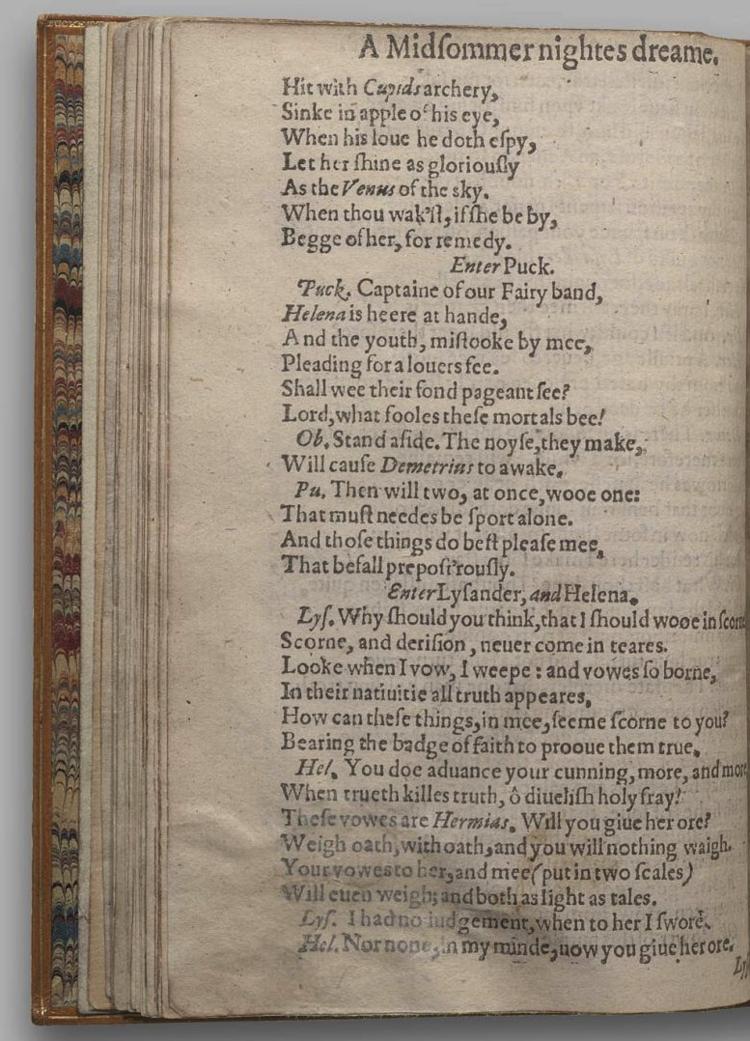 A Midſommer nightes dreame.
Hit with Cupids archery,
Sinke in apple of his eye,
When his loue he doth eſpy,
Let her ſhine as gloriouſly
As the Venus of the sky.
When thou wak'ſt, if ſhe be by,
Begge of her, for remedy.
Enter Puck.
Puck. Captaine of our Fairy band,
Helena is heere at hande,
And the youth, miſtooke by mee,
Pleading for a louers fee.
Shall wee their fond pageant ſee?
Lord, what fooles theſe mortals bee!
Ob. Stand aſide. The noyſe, they make,
Will cauſe Demetrius to awake.
Pu. Then will two, at once, wooe one:
That muſt needes be ſport alone.
And thoſe things do beſt pleaſe mee,
That befall prepoſt'rouſly.
Enter Lyſander, and Helena.
Lyſ. Why ſhould you think, that I ſhould wooe in ſcorne
Scorne, and deriſion, neuer come in teares.
Looke when I vow, I weepe: and vowes ſo borne,
In their natiuitie all truth appeares,
How can theſe things, in mee, ſeeme ſcorne to you?
Bearing the badge of faith to prooue them true.
Hel. You doe aduance your cunning, more, and more
When trueth killes truth, ô diueliſh holy fray!
Theſe vowes are Hermias. Will you giue her ore?
Weigh oath, with oath, and you will nothing waigh.
Your vowes to her, and mee (put in two ſcales)
Will euen weigh; and both as light as tales.
Lyſ. I had no iudgement, when to her I ſwore.
Hel. Nor none, in my minde, now you giue her ore.